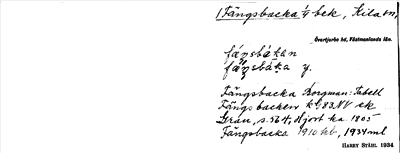 Fängsbacka 1/4 bek, Kila sn,
Övertjurbo hd, Västmanlands län.
fäŋsbákan
fäŋsbáka y.
Fängsbacka Borgman: Tabell
Fängsbacken kl. 83 NV ek
Grau, s. 564, Hjort ka 1805
Fängsbacka 1910 kb, 1934 ml
HARRY STÅHL 1934